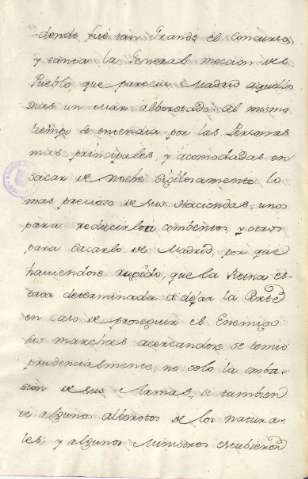 donde fue tan Grande el Concurso,
y tanta la General mocion del
Pueblo que parecia Madrid aquellos
dias un mar alborotado. Al mismo
tiempo se entendia por las Personas
mas principales, y acomodadas en
sacar de noche sigilosamente lo
mas precioso de sus Haciendas, unos
para reducirlo a Combentos, y otros
para sacarlo de Madrid, por que
haviendose sugido, que la Reina es
taba determinada a dejar la Corte
en caso de proseguir el Enemigo
sus marchas acercandose, se temio
prudencialmente, no solo la imba
sion de sus Armas, si tambien
de algunos alientos de los natura
les, y algunos Ministros escubieron